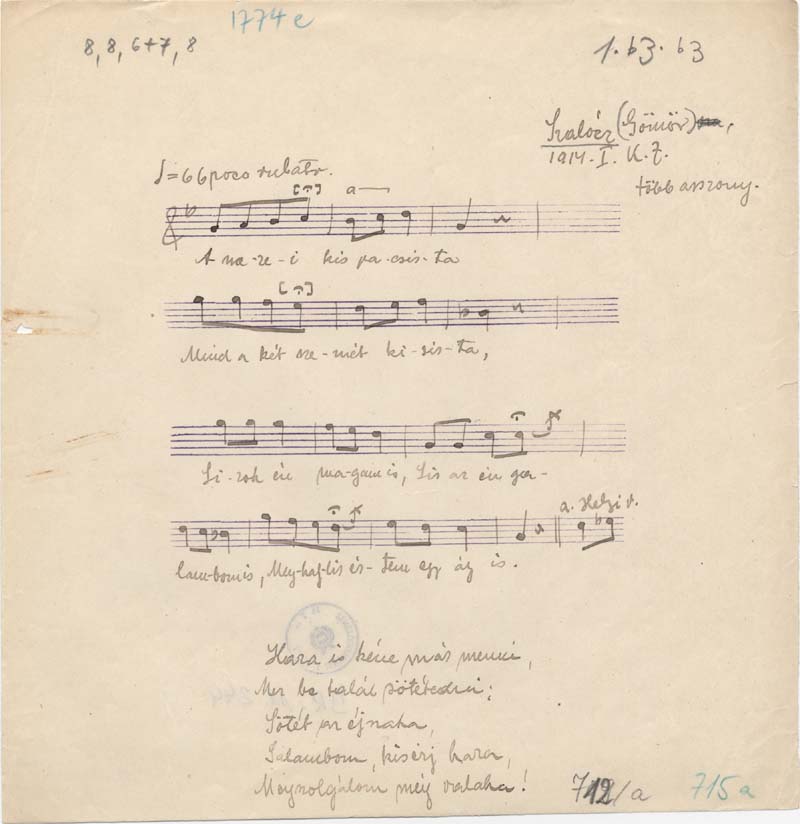 1774 e
8, 8, 6+7, 8
1. b3. b3
Szalócz (Gömör)
1914. I. K. Z.
több asszony.
♩=66 poco rubato.
[𝄐]
a
A me-ze-i kis pa-csis-ta
[𝄐]
Mind a két sze-mét ki-sis-ta,
Si-rok én ma-gam is, Sis az én ga-
a. Helzi v.
lam-bom is, Meg-haj-lis és-tem egy ág is.
Haza is kéne már menni,
Mer be talál sötétedni;
Sötét az éjszaka,
Galambom, kisérj haza,
Megszolgálom még valaha!
712/a
715 a